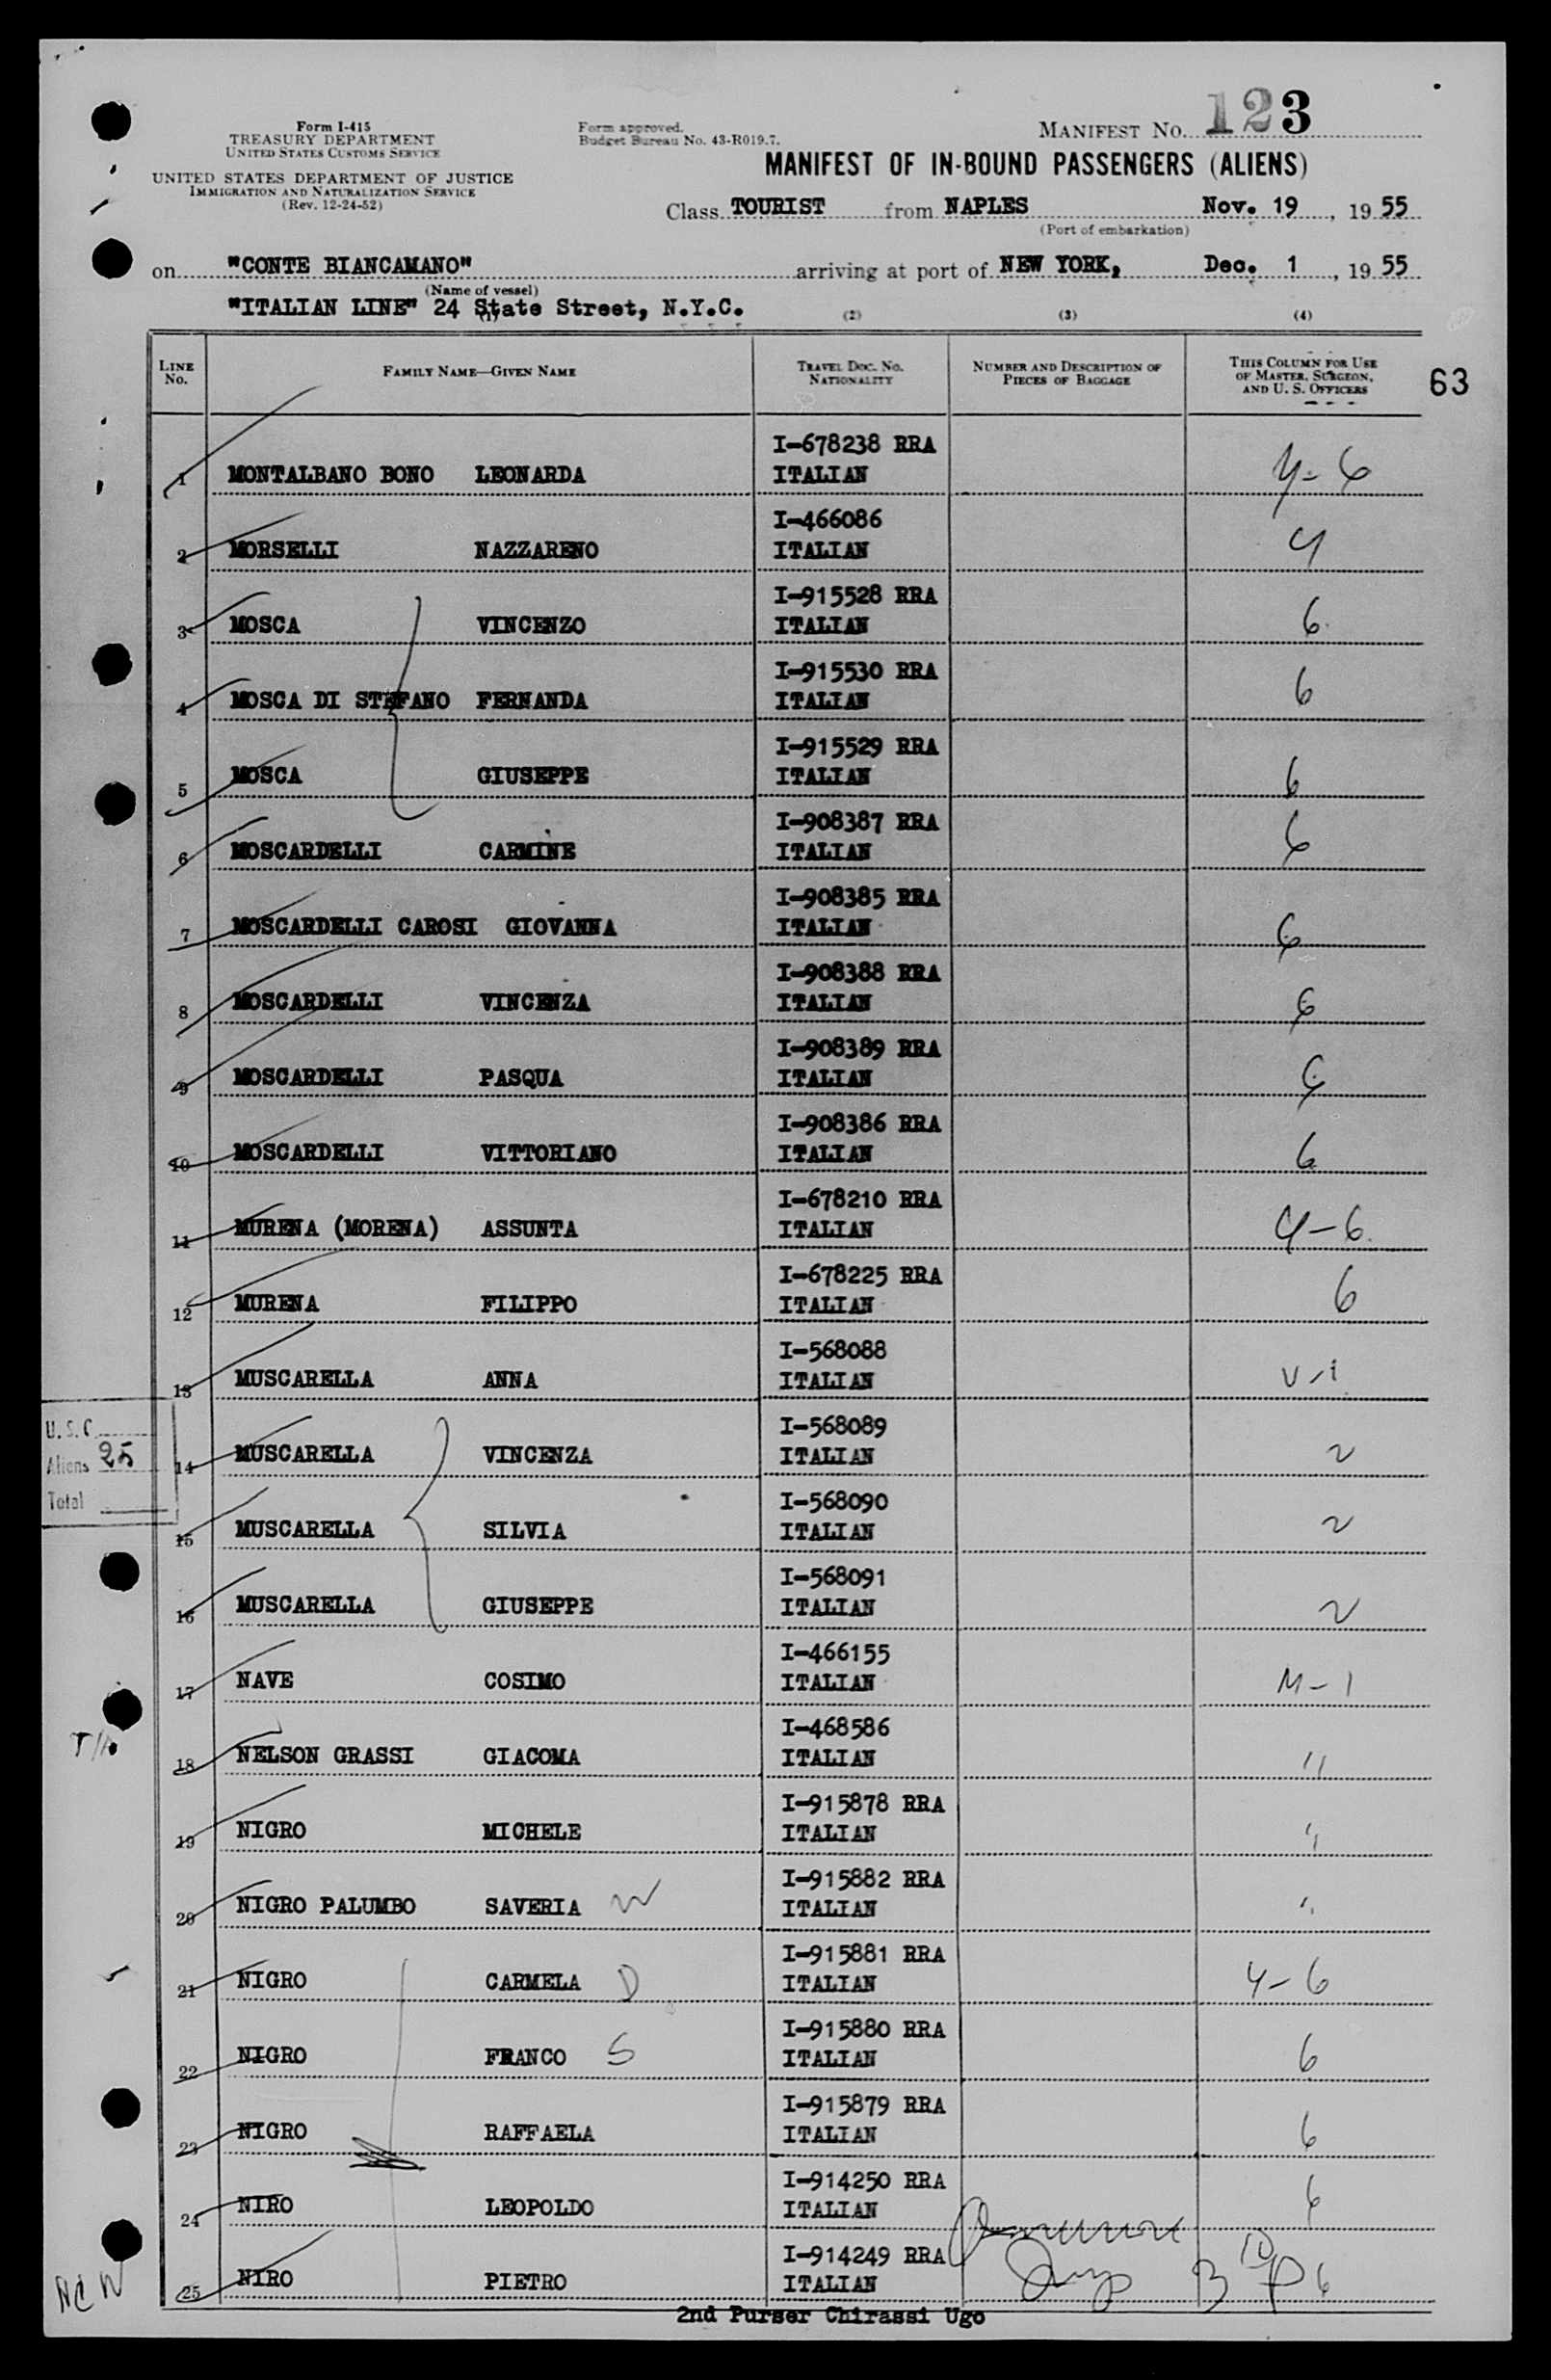 Form I-415
TREASURY DEPARTMENT
UNITED STATES CUSTOMS SERVICE
UNITED STATES DEPARTMENT OF JUSTICE
IMMIGRATION AND NATURALIZATION SERVICE
(Rev. 12-24-52)
Form approved.
Budget Bureau No. 43-R019.7.
MANIFEST NO. 123
MANIFEST OF IN-BOUND PASSENGERS (ALIENS)
Class TOURIST from NAPLES Nov. 19, 1955
(Port of embarkation)
on "CONTE BIANCAMANO" arriving at port of NEW YORK, Dec. 1, 1955
(Name of vessel)
"ITALIAN LINE" 24 State Street, N.Y.C.
(1) (2) (3) (4)
LINE No. FAMILY NAME—GIVEN NAME TRAVEL DOC. NO. NATIONALITY NUMBER AND DESCRIPTION OF PIECES OF BAGGAGE THIS COLUMN FOR USE OF MASTER, SURGEON, AND U. S. OFFICERS
63
I-678238 RRA
1 MONTALBANO BONO LEONARDA ITALIAN 4-6
I-466086
2 MORSELLI NAZZARENO ITALIAN 4
I-915528 RRA
3 MOSCA VINCENZO ITALIAN 6
I-915530 RRA
4 MOSCA DI STEFANO FERNANDA ITALIAN 6
I-915529 RRA
5 MOSCA GIUSEPPE ITALIAN 6
I-908387 RRA
6 MOSCARDELLI CARMINE ITALIAN 6
I-908385 RRA
7 MOSCARDELLI CAROSI GIOVANNA ITALIAN 6
I-908388 RRA
8 MOSCARDELLI VINCENZA ITALIAN 6
I-908389 RRA
9 MOSCARDELLI PASQUA ITALIAN 6
I-908386 RRA
10 MOSCARDELLI VITTORIANO ITALIAN 6
I-678210 RRA
11 MURENA (MORENA) ASSUNTA ITALIAN 4-6
I-678225 RRA
12 MURENA FILIPPO ITALIAN 6
I-568088
13 MUSCARELLA ANNA ITALIAN V-1
U.S.C.
Aliens 25
Total
I-568089
14 MUSCARELLA VINCENZA ITALIAN
I-568090
15 MUSCARELLA SILVIA ITALIAN
I-568091
16 MUSCARELLA GIUSEPPE ITALIAN
I-466155
17 NAVE COSIMO ITALIAN M-1
I-468586
18 NELSON GRASSI GIACOMA ITALIAN "
I-915878 RRA
19 NIGRO MICHELE ITALIAN "
I-915882 RRA
20 NIGRO PALUMBO SAVERIA W ITALIAN "
I-915881 RRA
21 NIGRO CARMELA D ITALIAN 4-6
I-915880 RRA
22 NIGRO FRANCO S ITALIAN 6
I-915879 RRA
23 NIGRO RAFFAELA ITALIAN 6
I-914250 RRA
24 NIRO LEOPOLDO ITALIAN 6
I-914249 RRA
25 NIRO PIETRO ITALIAN 6
2nd Purser Chirassi Ugo